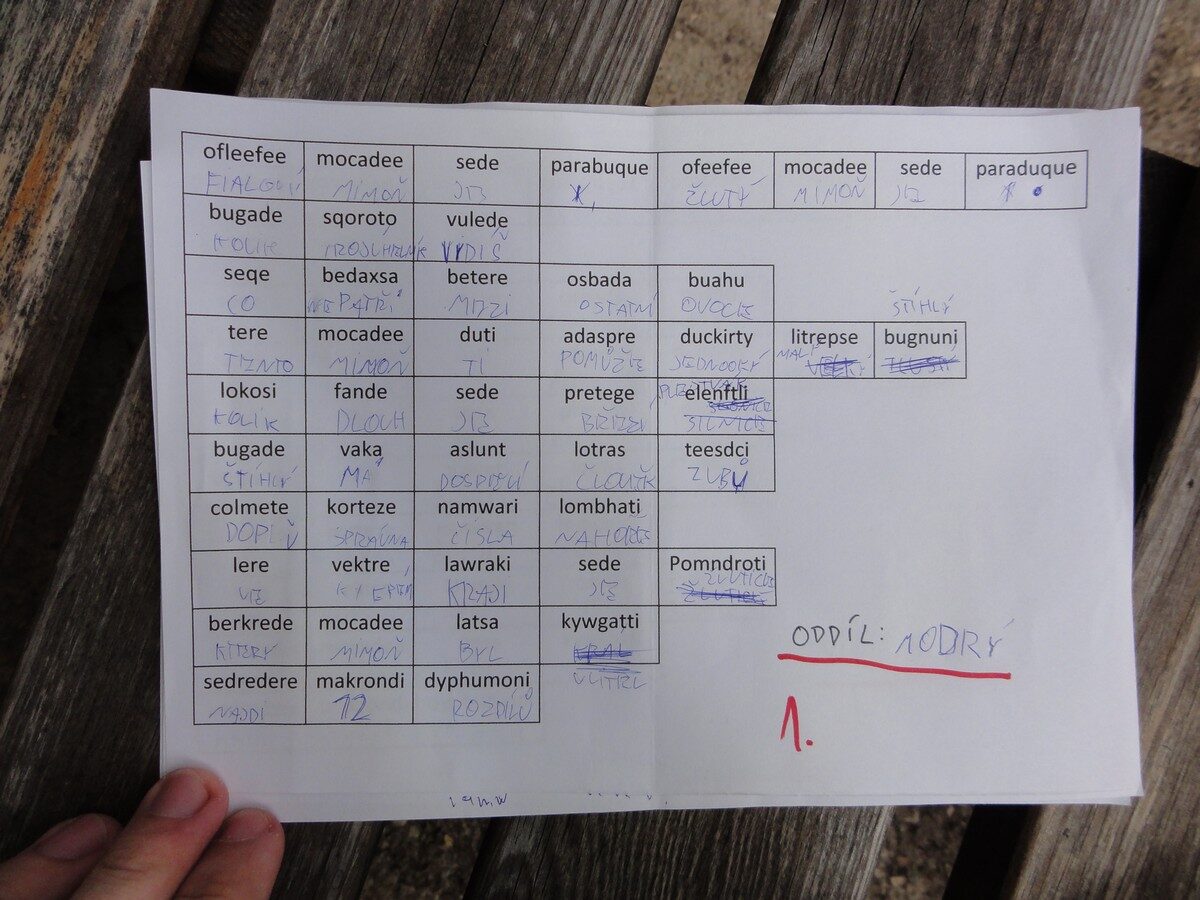 ofleefee mocadee sede parabuque ofeefee mocadee sede paraduque
FIALOVÝ MIMOŇ JE ŽLUTÝ MIMOŇ JE
bugade sqoroto vulede
KOLIK VIDÍŠ
seqe bedaxsa betere osbada buahu
CO NEPATŘÍ MEZI OSTATNÍ OVOCE ŠTÍHLÝ
tere mocadee duti adaspre duckirty litrepse bugnuni
TENTO MIMOŇ TI POMŮŽE JEDNOOKÝ MALÝ
lokosi fande sede pretege elenftli
KOLIK DLOUH JE
bugade vaka aslunt lotras teesdci
ŠTÍHLÝ MÁ DOSPĚLÍ ZUBŮ
colmete korteze namwari lombhati
DOPLŇ SPRÁVNA ČÍSLA NAHOŘE
lere vektre lawraki sede Pomndroti
VE KRAJI JE
berkrede mocadee latsa kywgatti
KTERÝ MIMOŇ BYL
sedredere makrondi dyphumoni
NAJDI 12 ROZDÍLŮ
ODDÍL: MODRÝ
1.